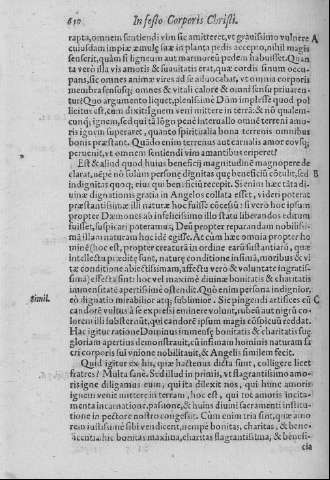 610 In festo Corporis Christi.
rapta, omnem sentiendi vim sic amitteret, vt grauissimo vulnere A
cuiusdam impiæ æmulę suæ in planta pedis accepto, nihil magis
senserit, quàm si ligneum aut marmoreũ podem habuisset. Quan
ta verò illa vis amoris & suauitatis erat, quæ cordis sinum occu-
pans, sic omnes animæ vires ad se aduocabat, vt omnia corporis
membra sensusq; omnes & vitali calore & omni sensu priuaren-
tur? Quo argumento liquet, plenissimè Dñm implesse quod pol
licitus est, cùm dixit: Ignem veni mittere in terrã: & nõ qualem-
cunq; ignem, sed qui tã lõgo penè interuallo omnẽ terreni amo-
ris ignem superaret, quanto spiritualia bona terrenis omnibus
bonis præstant. Quãdo enim terrenus aut carnalis amor eousq;
peruenit, vt omnem sentiendi vim amantibus eriperet?
Est & aliud quod huius beneficij magnitudinẽ magnopere de
clarat, nẽpe nõ solùm personę dignitas quę beneficiũ cõtulit, sed B
indignitas quoq; eius qui beneficiũ recepit. Si enim hæc tãta di-
uinæ dignationis gratia in Angelos collata esset, videri poterat
præstantissimæ illi naturæ hoc fuisse cõcessũ: si verò hoc ipsum
propter Dæmones ab infelicissimo illo statu liberandos editum
fuisset, suspicari poteramus, Deũ propter reparandam nobilissi-
mã illam naturam hoc idẽ egisse. At cùm hæc omnia propter ho
minẽ (hoc est, propter creaturã in ordine earũ sustantiarũ, quæ
intellectu præditę sunt, naturę conditione infimã, moribus & vi
tæ conditione abiectissimam, affectu verò & voluntate ingratis-
simã) effecta sint: hoc vel maximè diuinæ bonitatis & charitatis
immensitatẽ apertissimè ostendit. Quò enim persona indignior,
simil. eò dignatio mirabilior atq; sublimior. Sic pingendi artifices cũ C
candorẽ vultus à se expressi eminere volunt, rubeũ aut nigrũ co-
lorem illi substernũt, qui candorẽ ipsum magis cõspicuũ reddat.
Hac igitur ratione Dominus immensę bonitatis & charitatis suę
gloriam apertius demonstrauit, cũ infimam hominis naturam sa
cri corporis sui vnione nobilitauit, & Angelis similem fecit.
Quid igitur ex his, quæ hactenus dicta sunt, colligere licet
fratres? Multa sanè. Sed illud in primis, vt flagrantissimo amo-
ris igne diligamus eum, qui ita dilexit nos, qui hunc amoris
ignem venit mittere in terram, hoc est, qui tot amoris incita-
menta incarnatione, passione, & huius diuini sacramenti institu-
tione in pectore nostro congessit. Cùm enim tria sint, quæ amo-
rem iustissimè sibi vendicent, nempè bonitas, charitas, & bene-
ficentia: hìc bonitas maxima, charitas flagrantissima, & benefi-
cia